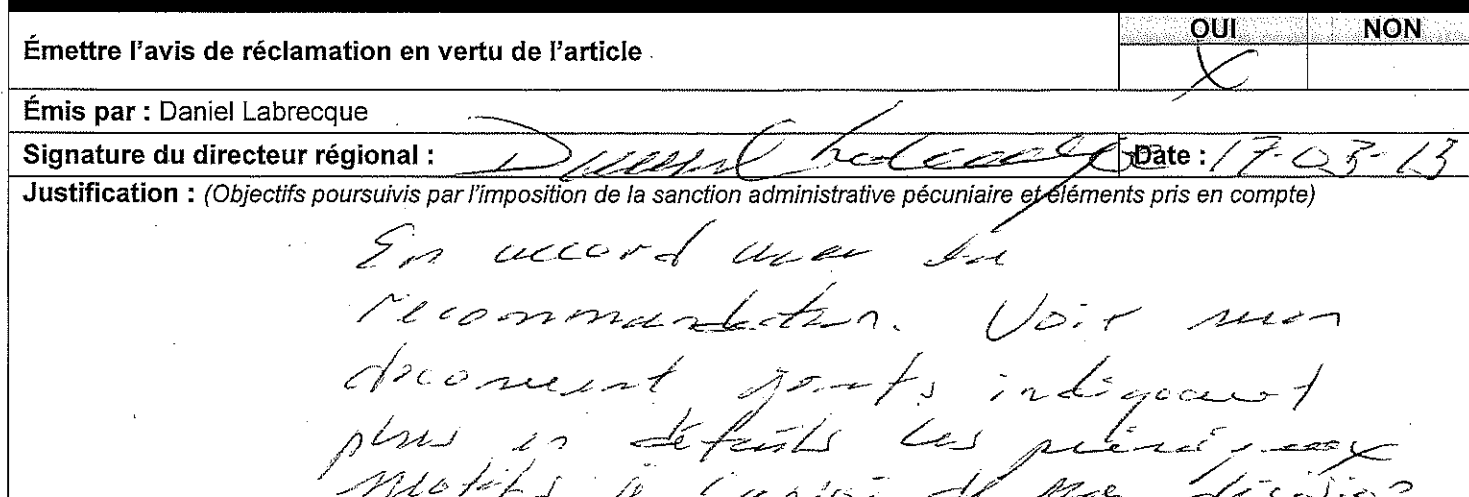 OUI NON
Émettre l'avis de réclamation en vertu de l'article
X
Émis par : Daniel Labrecque
Signature du directeur régional : Daniel Labrecque Date : 17-03-13
Justification : (Objectifs poursuivis par l'imposition de la sanction administrative pécuniaire et éléments pris en compte)
En accord avec la
recommandation. Voir mon
document joints indiquant
plus en détails les principaux
motifs à l'appui de ma décision